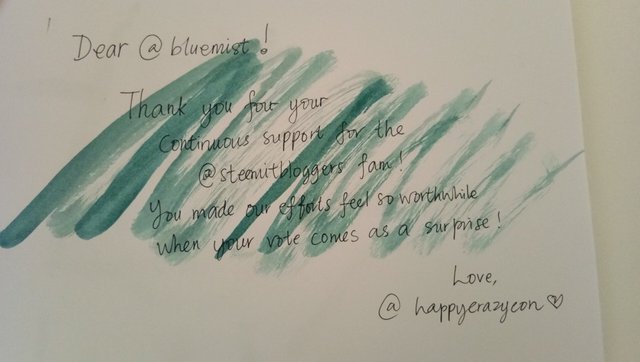 Dear @bluemist!
Thank you for your
Continuous support for the
@steemitbloggers fam!
You made our efforts feel so worthwhile
when your vote comes as a surprise!
Love,
@happycrazycon♡